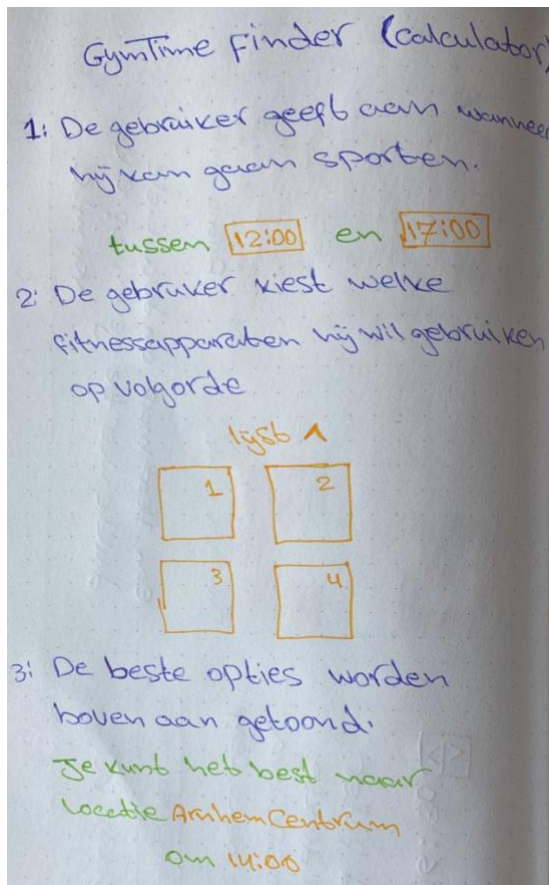 GymTime Finder (calculator)
1: De gebruiker geeft aan wanneer
hij kan gaan sporten.
tussen 12:00 en 17:00
2: De gebruker kiest welke
fitnessapparaten hij wil gebruiken
op volgorde
lijst 1
1 2
3 4
3: De beste opties worden
boven aan getoond.
Je kunt het best naar
locatie Arnhem Centrum
om 14:00